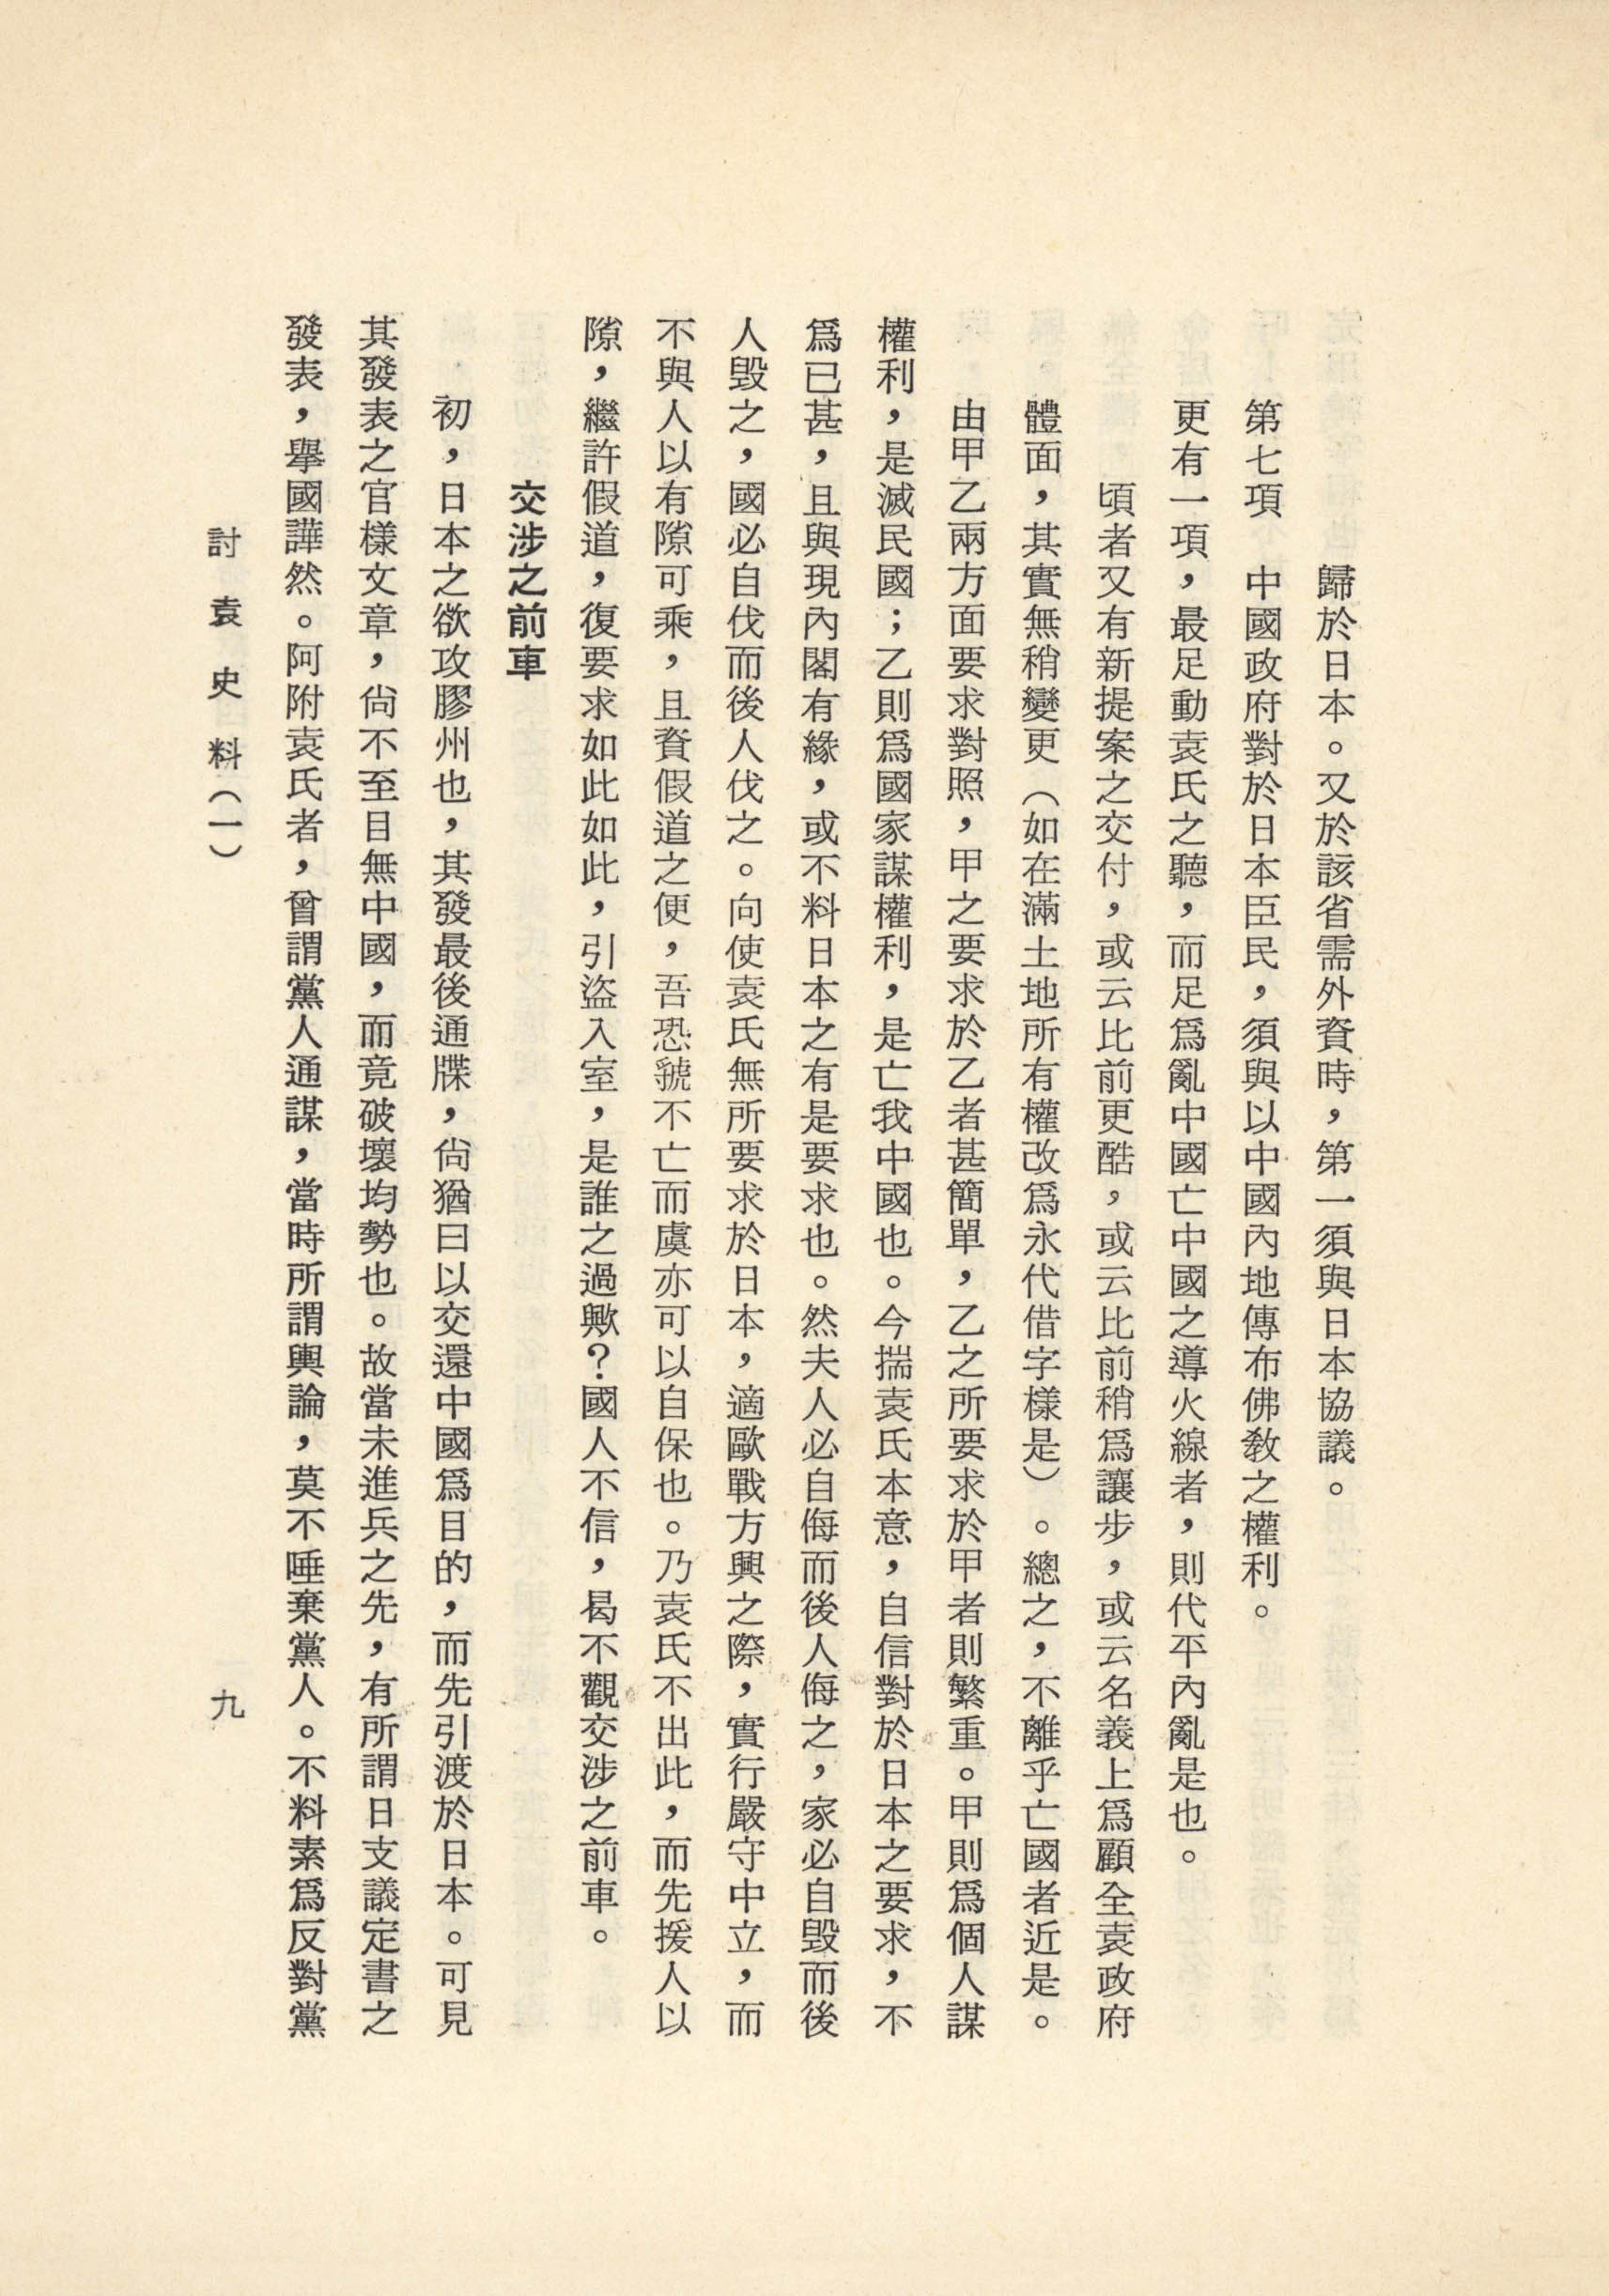 歸於日本。又於該省需外資時，第一須與日本協議。
第七項　中國政府對於日本臣民，須與以中國內地傳布佛教之權利。
更有一項，最足動袁氏之聽，而足爲亂中國亡中國之導火線者，則代平內亂是也。
頃者又有新提案之交付，或云比前更酷，或云比前稍爲讓步，或云名義上爲顧全袁政府
體面，其實無稍變更（如在滿土地所有權改爲永代借字樣是）。總之，不離乎亡國者近是。
由甲乙兩方面要求對照，甲之要求於乙者甚簡單，乙之所要求於甲者則繁重。甲則爲個人謀
權利，是滅民國；乙則爲國家謀權利，是亡我中國也。今揣袁氏本意，自信對於日本之要求，不
爲已甚，且與現內閣有緣，或不料日本之有是要求也。然夫人必自侮而後人侮之，家必自毀而後
人毀之，國必自伐而後人伐之。向使袁氏無所要求於日本，適歐戰方興之際，實行嚴守中立，而
不與人以有隙可乘，且資假道之便，吾恐虢不亡而虞亦可以自保也。乃袁氏不出此，而先援人以
隙，繼許假道，復要求如此如此，引盜入室，是誰之過歟？國人不信，曷不觀交涉之前車。
交涉之前車
初，日本之欲攻膠州也，其發最後通牒，尙猶曰以交還中國爲目的，而先引渡於日本。可見
其發表之官樣文章，尙不至目無中國，而竟破壞均勢也。故當未進兵之先，有所謂日支議定書之
發表，舉國譁然。阿附袁氏者，曾謂黨人通謀，當時所謂輿論，莫不唾棄黨人。不料素爲反對黨
討袁史料（一）
九